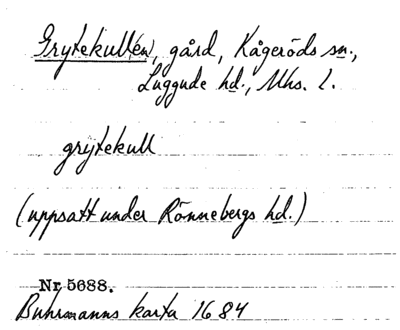 Grytekullen, gård, Kågeröds sn.,
Luggude hd., Mhs. l.
grÿtekull
(uppsatt under Rönnebergs hd.)
Nr 5688.
Buhrmanns karta 1684